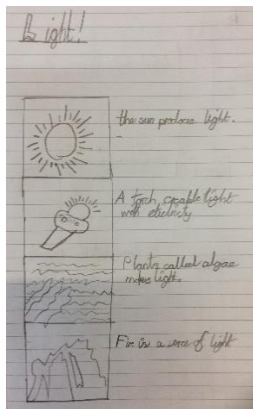 Light!
the sun perduse light.
A torch, creable light
with elictricty
Plants called algae
makes light.
Fir is a serce of light